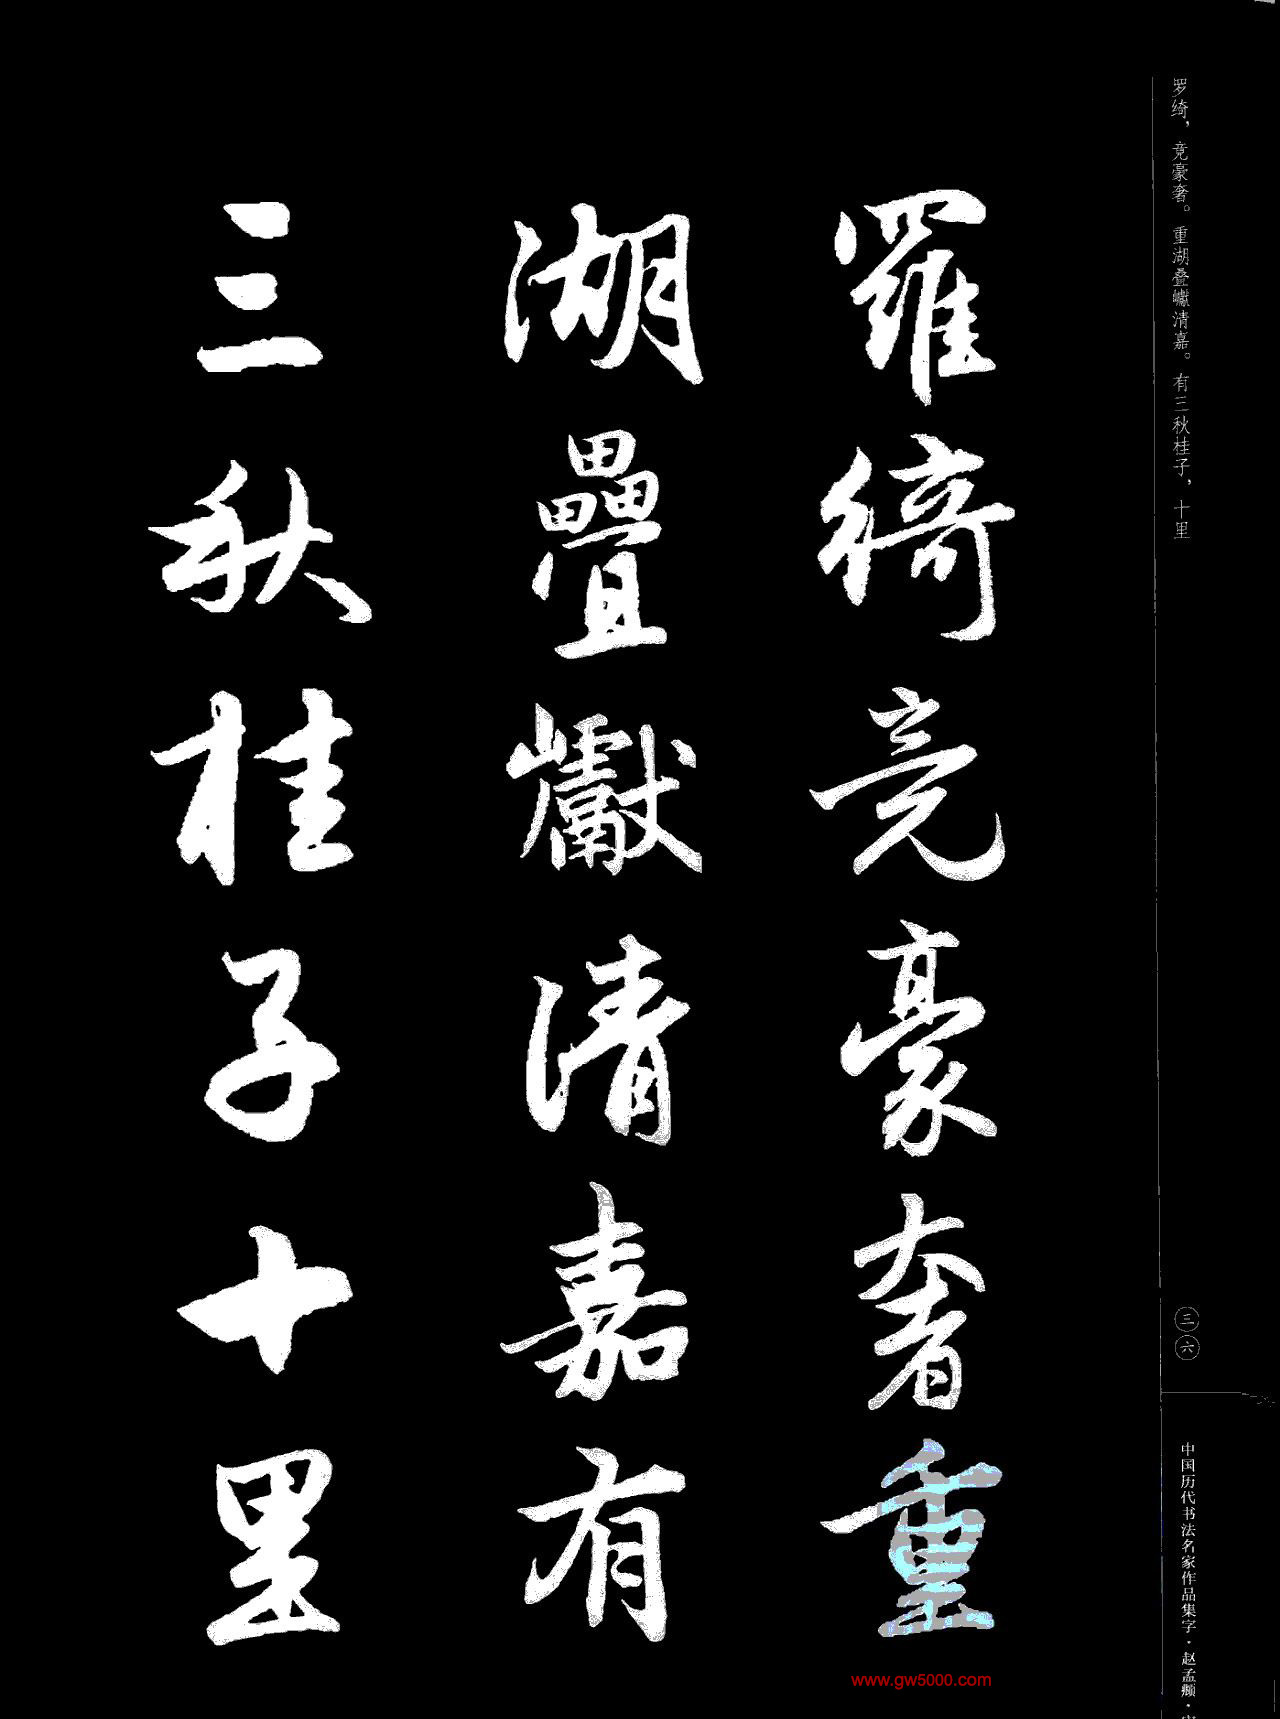 罗绮，竞豪奢。重湖叠巘清嘉。有三秋桂子，十里
羅綺竞豪奢重
湖疊巘清嘉有
三秋桂子十里
三六
中国历代书法名家作品集字·赵孟頫·
www.gw5000.com